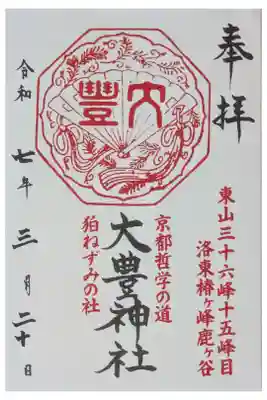 奉拝
東山三十六峰十五峰目
洛東椿ヶ峰鹿ヶ谷
大豊
大豊神社
京都哲学の道
狛ねずみの社
令和七年三月二十日